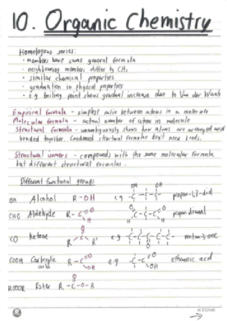 10. Organic Chemistry
Homologous series:
• members have same general formula
• neighbouring members differ by CH₂
• similar chemical properties
• graduation in physical properties
e.g. boiling point shows gradual increase due to Van der Waals
Empirical formula - simplest ratio between atoms in a molecule
Molecular formula - actual number of atoms in molecule
Structural formula - unambiguously shows how atoms are arranged and
bonded together. Condensed structural formulae don't need bonds.
Structural isomers - compounds with the same molecular formula
but different structural formulae.
Different functional groups:
OH Alcohol R-OH e.g.
CHO Aldehyde R-C propandienal
CO Ketone R-C R' e.g.
COOH Carboxylic acid R-C e.g. ethanoic acid
Ester R-C-O-R